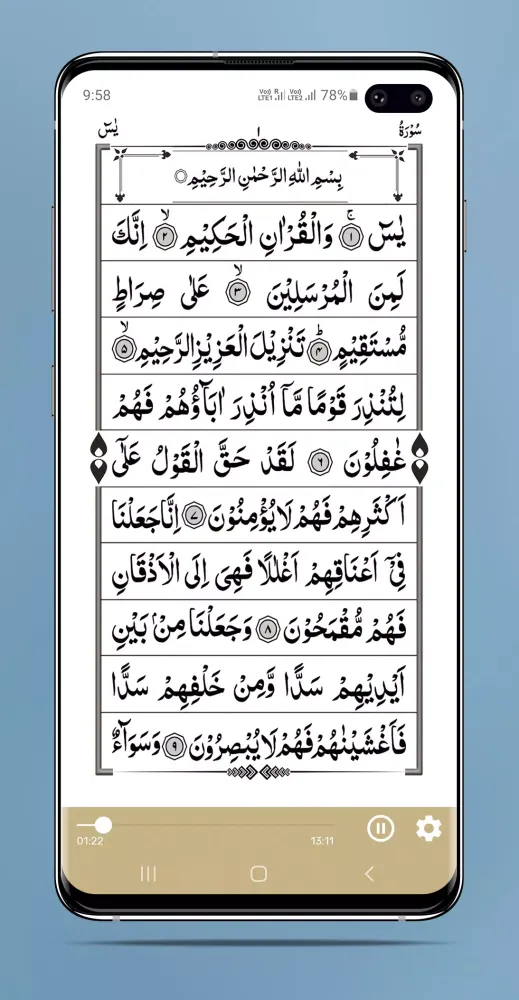 9:58 Vo) R LTE1 Vo) LTE2 78%
سُوْرَةُ ١ يٰسٓ
بِسْمِ اللّٰهِ الرَّحْمٰنِ الرَّحِيْمِ
يٰسٓ ۚ ﴿١﴾ وَالْقُرْاٰنِ الْحَكِيْمِ ۙ ﴿٢﴾ اِنَّكَ
لَمِنَ الْمُرْسَلِيْنَ ۙ ﴿٣﴾ عَلٰى صِرَاطٍ
مُّسْتَقِيْمٍ ؕ ﴿۴﴾ تَنْزِيْلَ الْعَزِيْزِ الرَّحِيْمِ ۙ ﴿۵﴾
لِتُنْذِرَ قَوْمًا مَّاۤ اُنْذِرَ اٰبَآؤُهُمْ فَهُمْ
غٰفِلُوْنَ ﴿۶﴾ لَقَدْ حَقَّ الْقَوْلُ عَلٰۤى
اَكْثَرِهِمْ فَهُمْ لَا يُؤْمِنُوْنَ ﴿۷﴾ اِنَّا جَعَلْنَا
فِيْۤ اَعْنَاقِهِمْ اَغْلٰلًا فَهِيَ اِلَى الْاَذْقَانِ
فَهُمْ مُّقْمَحُوْنَ ﴿۸﴾ وَجَعَلْنَا مِنْۢ بَيْنِ
اَيْدِيْهِمْ سَدًّا وَّمِنْ خَلْفِهِمْ سَدًّا
فَاَغْشَيْنٰهُمْ فَهُمْ لَا يُبْصِرُوْنَ ﴿۹﴾ وَسَوَآءٌ
01:22 13:11